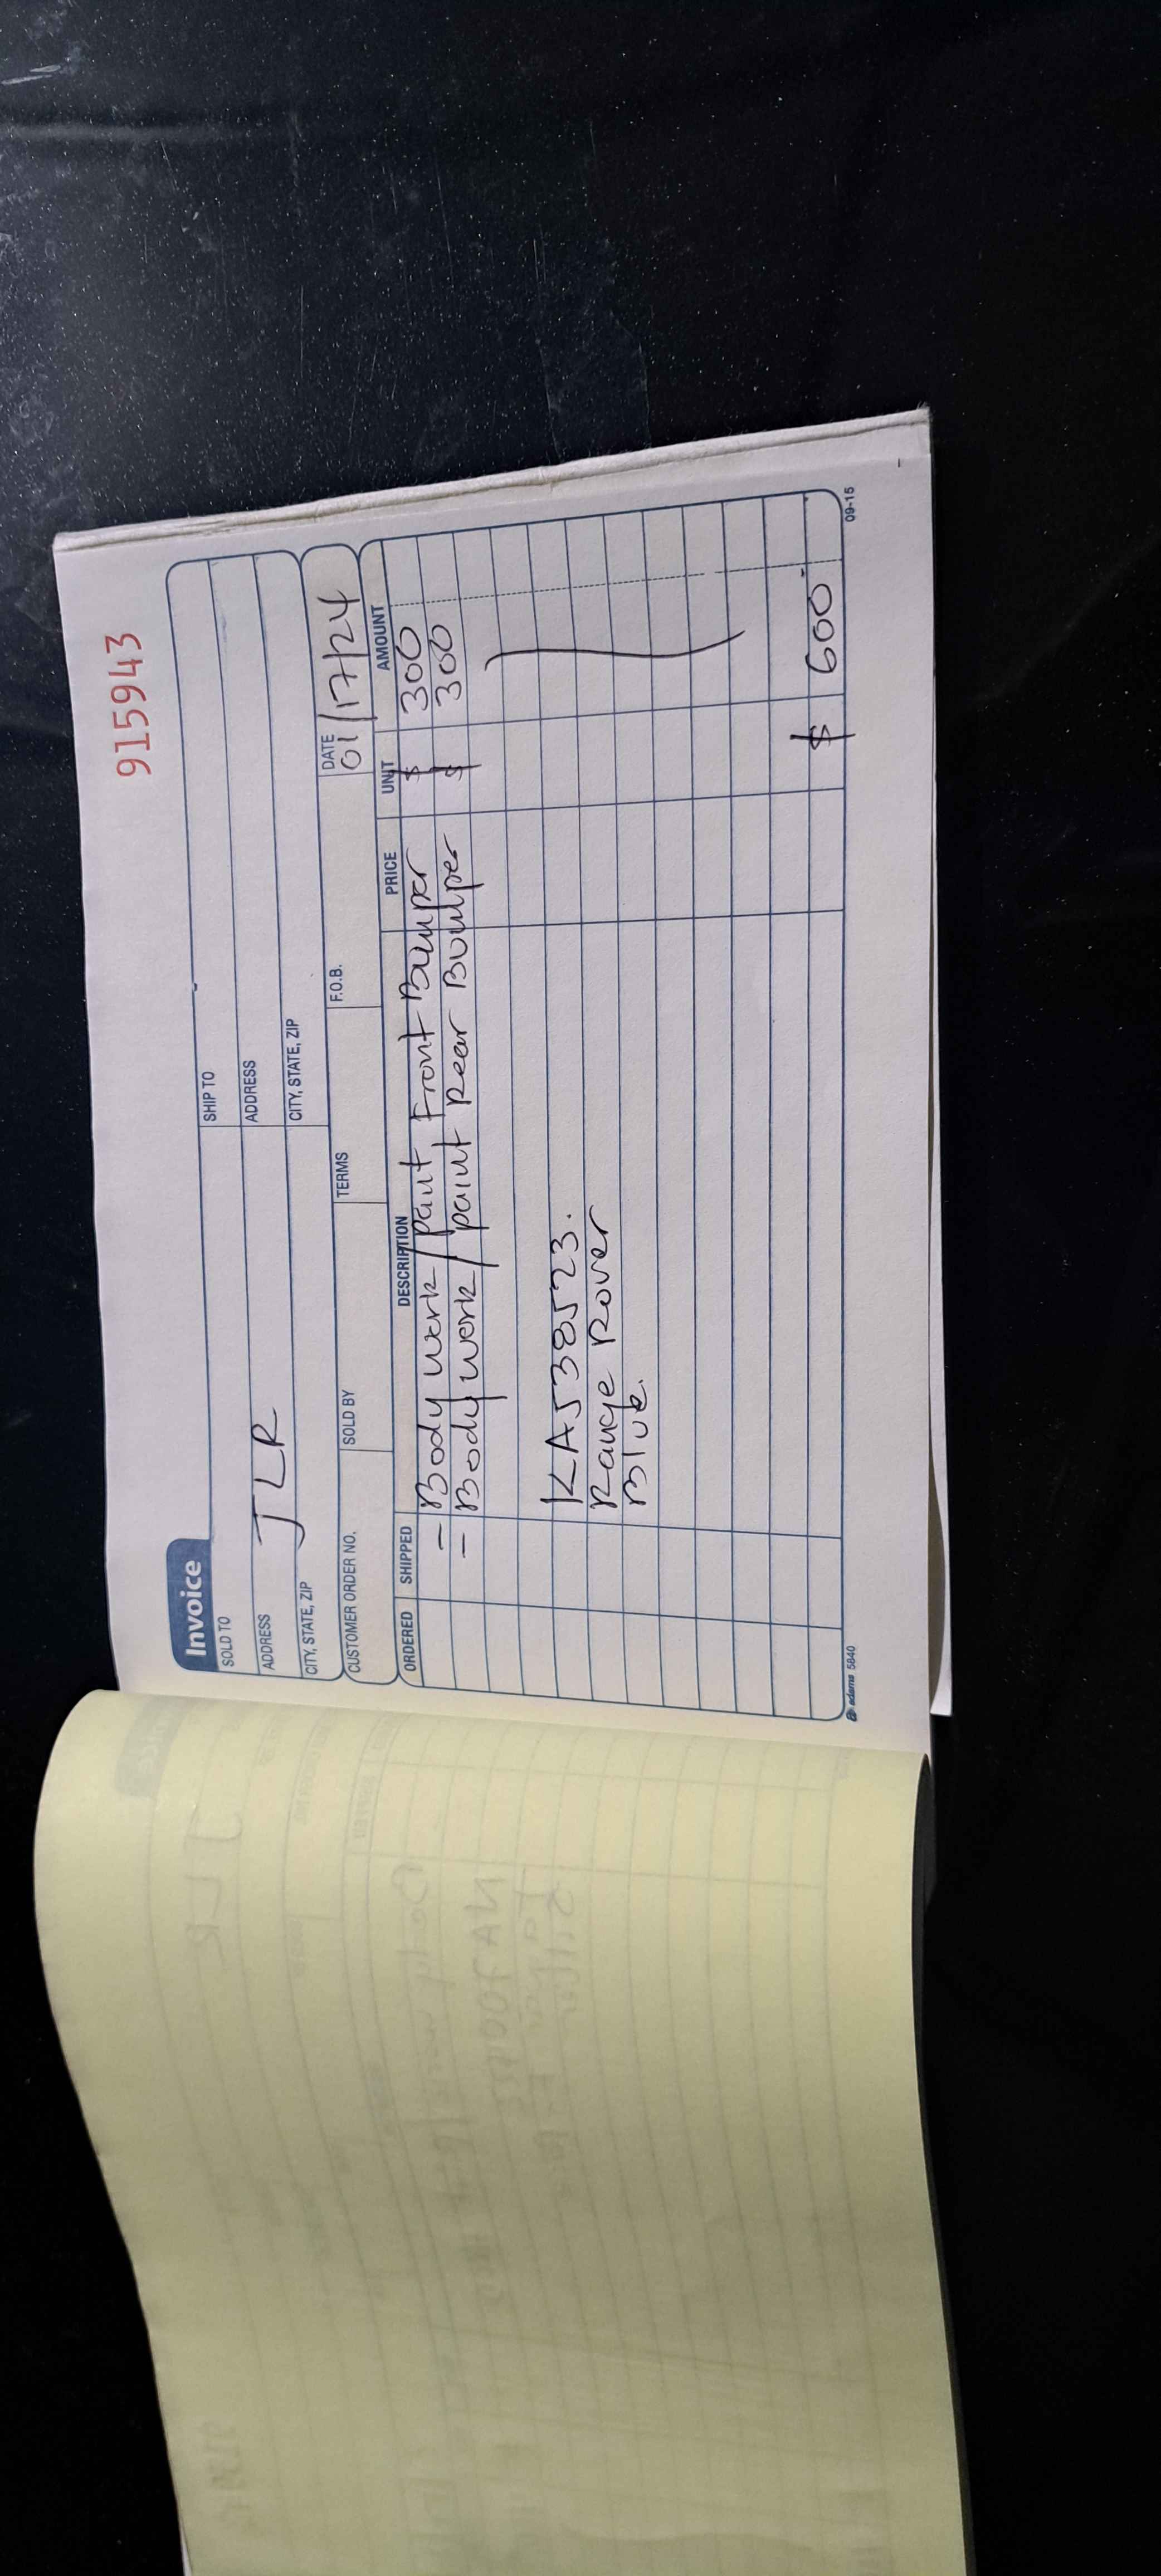 915943
Invoice
SOLD TO
SHIP TO
ADDRESS
JLR
ADDRESS
CITY, STATE, ZIP
CITY, STATE, ZIP
CUSTOMER ORDER NO. SOLD BY TERMS F.O.B. DATE
01/17/24
ORDERED SHIPPED DESCRIPTION PRICE UNIT AMOUNT
- Body work/paint Front Bumper $ 300
- Body work/paint Rear Bumper $ 300
KA538523.
Range Rover
Blue.
$ 600-
adams 5840 09-15